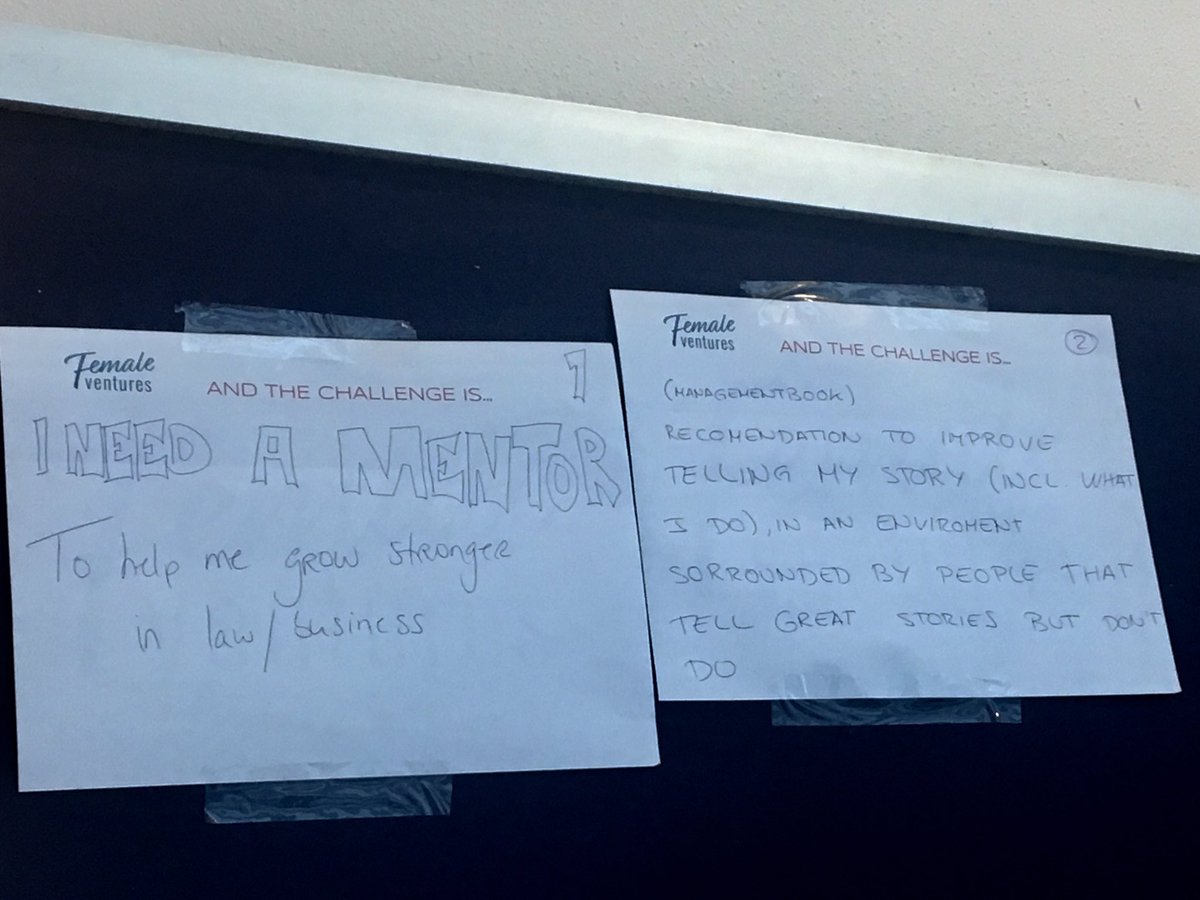 Female
ventures
AND THE CHALLENGE IS...
1
I NEED A MENTOR
To help me grow stronger
in law/business
Female
ventures
AND THE CHALLENGE IS...
2
(MANAGEMENTBOOK)
RECOMENDATION TO IMPROVE
TELLING MY STORY (INCL. WHAT
I DO), IN AN ENVIROMENT
SORROUNDED BY PEOPLE THAT
TELL GREAT STORIES BUT DON'T
DO